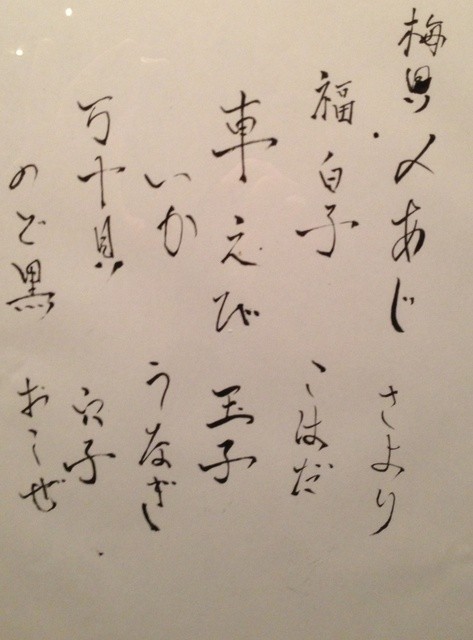 梅貝 〆あじ さより
福白子 こはだ
車えび 玉子
いか うなぎ
万十貝 穴子
のど黒 おこぜ